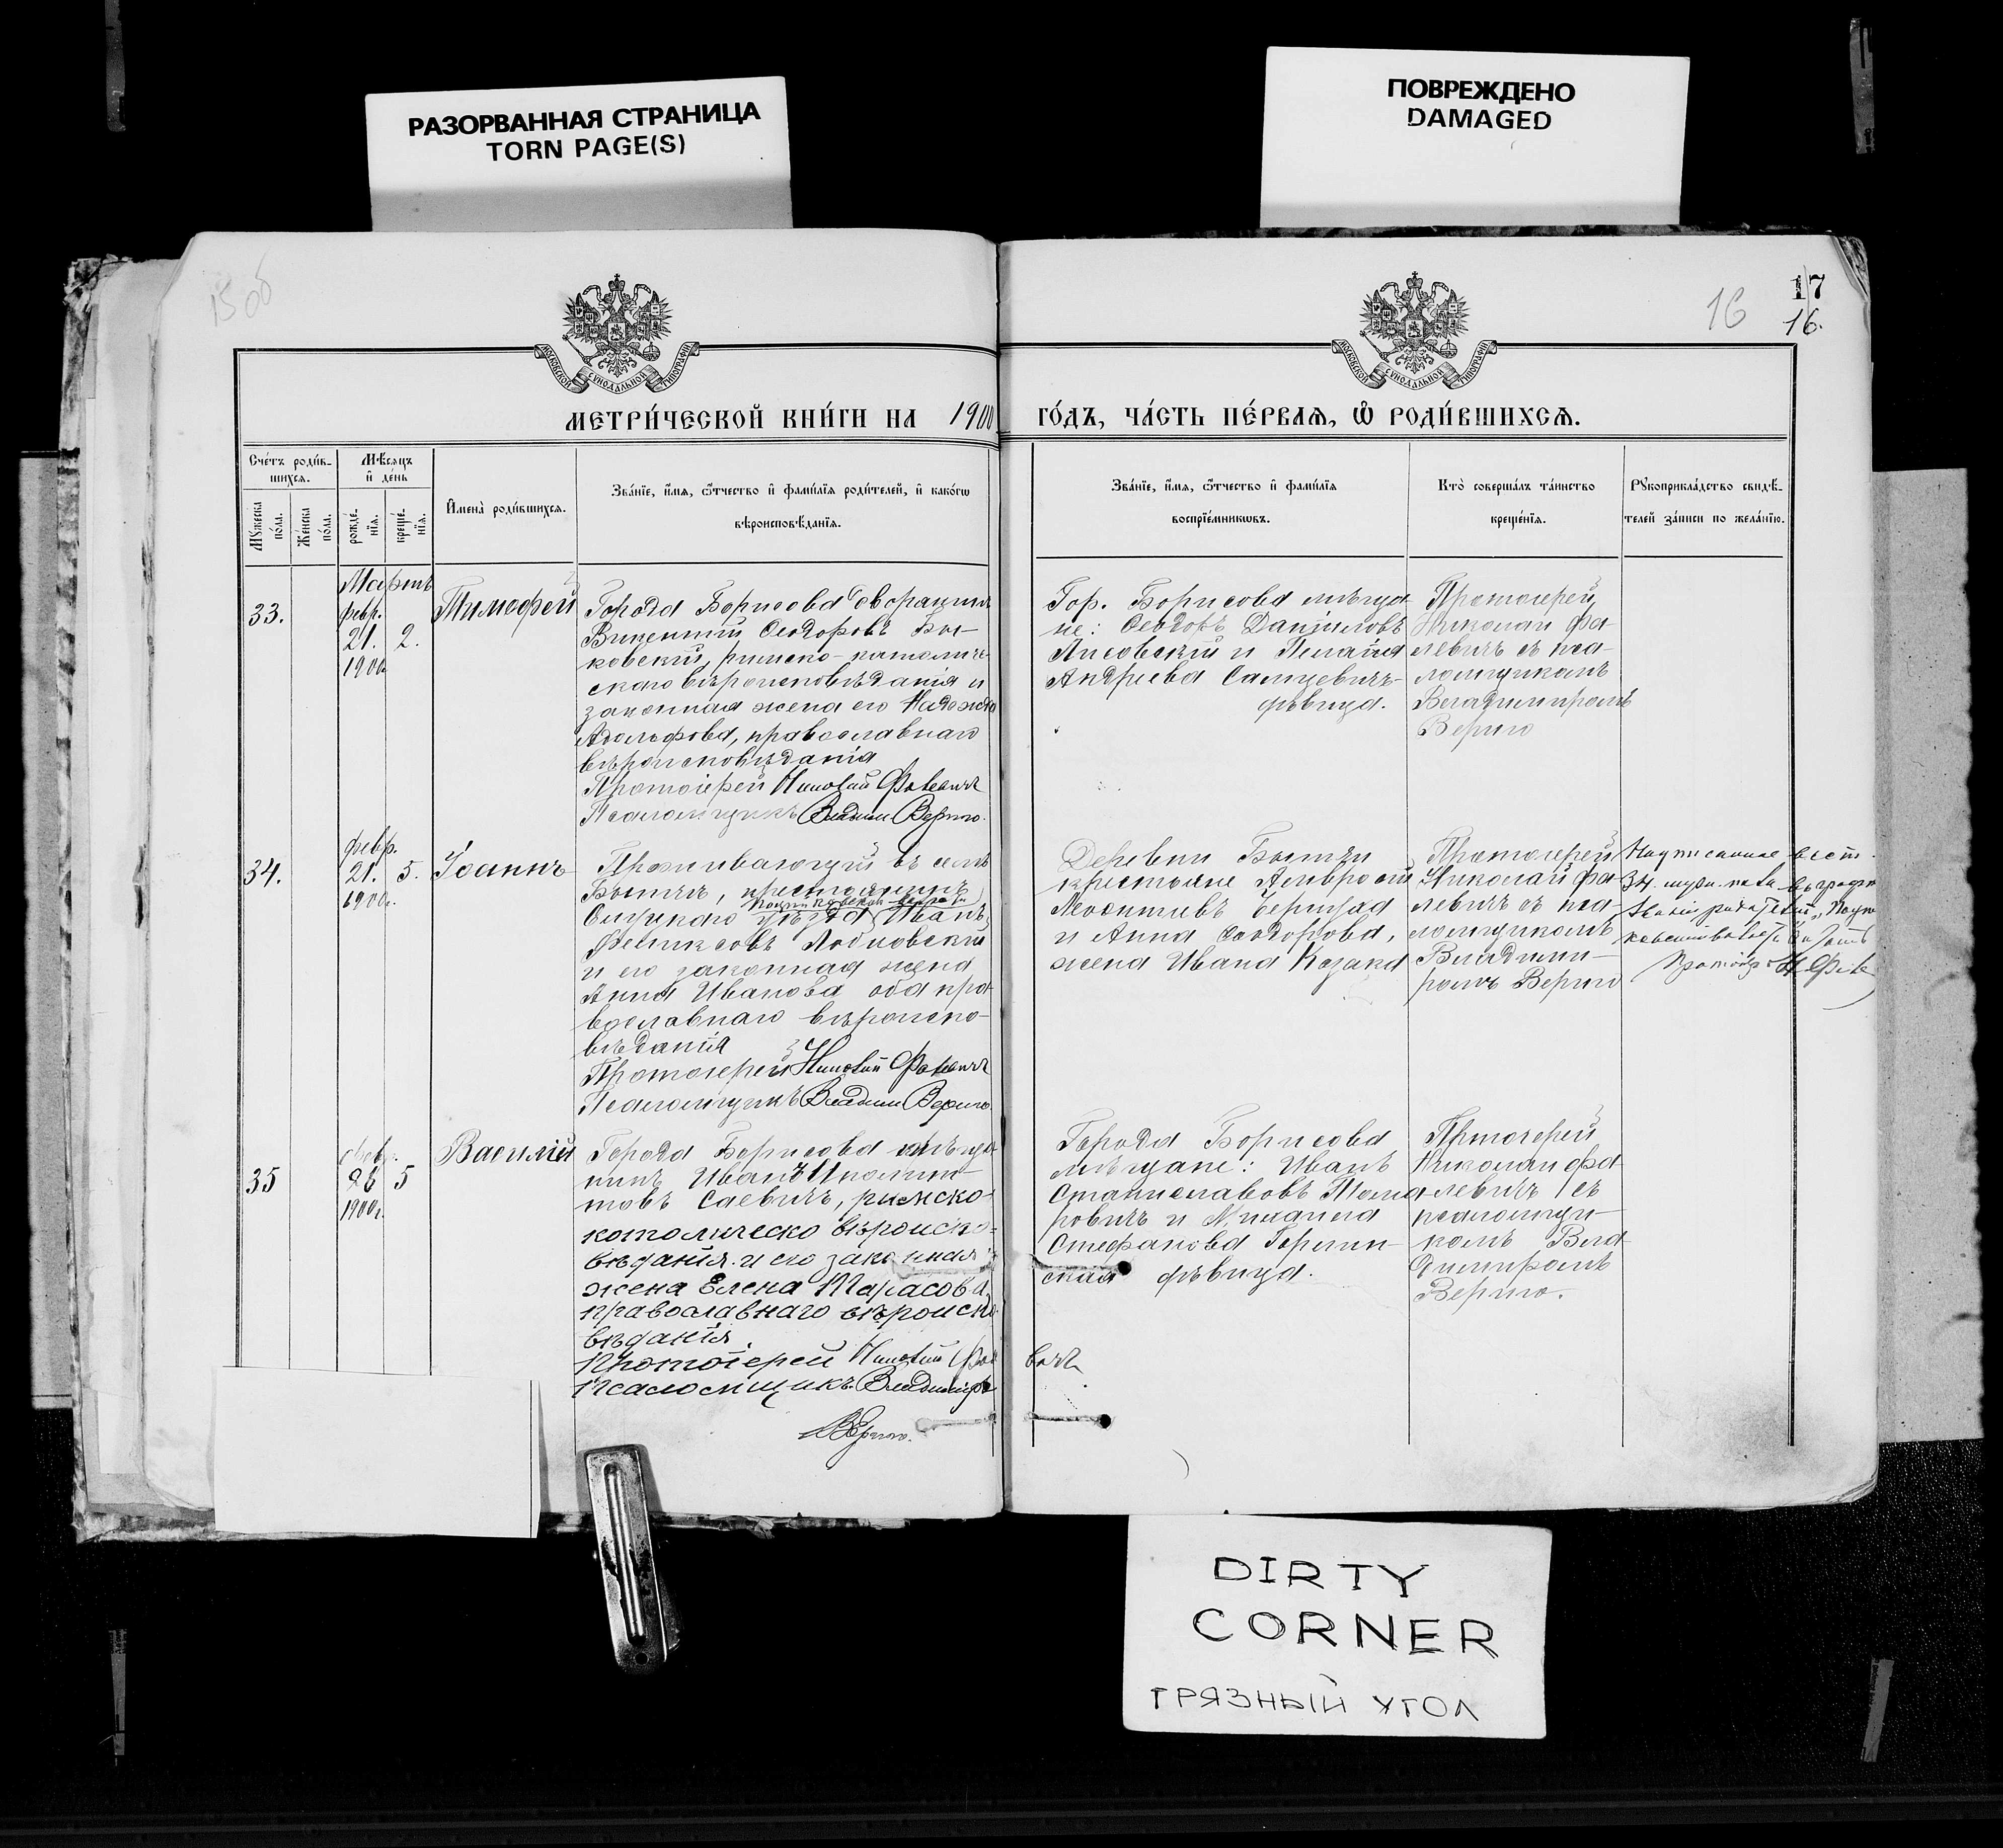 РАЗОРВАННАЯ СТРАНИЦА
TORN PAGE(S)
ПОВРЕЖДЕНО
DAMAGED
15 об
16
17
16.
МОСКОВСКОЙ СѴНОДАЛЬНОЙ ТИПОГРАФІИ
МОСКОВСКОЙ СѴНОДАЛЬНОЙ ТИПОГРАФІИ
МЕТРИ́ЧЕСКОЙ КНИ́ГИ НА 1900 ГО́ДЪ, ЧА́СТЬ ПЕ́РВАѦ, Ѡ҆ РОДИ́ВШИХСѦ.
Сче́тъ роди́в-
шихся.
Мꙋ́жеска по́ла.
Же́нска по́ла.
Мѣ́сяцъ и҆ де́нь
рожде́-
нїѧ.
креще́-
нїѧ.
И҆мена̀ роди́вшихся.
Зва́нїе, и҆́мѧ, ѻ҆́тчество и҆ фами́лїѧ роди́телей, и҆ како́гѡ
вѣроисповѣ́данїѧ.
Зва́нїе, и҆́мѧ, ѻ҆́тчество и҆ фами́лїѧ
воспрїе́мникѡвъ.
Кто̀ соверша́лъ та́инство
креще́нїѧ.
Рꙋкоприкла́дство свидѣ́-
телей за́писи по жела́нїю.
33.
Мартъ
февр.
21. 2.
1900
Тимофей
Города Борисова дворянинъ
Викентий Ѳеодоровъ
ковский, римско-католиче-
скаго вѣроисповѣданія и
законная жена его Надежда
Адольфова, православнаго
вѣроисповѣданія
Протоіерей Николай Фалевичъ
Псаломщикъ Владим Верго.
Гор. Борисова мѣща-
не: Ѳеодоръ Данииловъ
Лисовский и Пелагия
Андреева
дѣвица.
Протоіерей
Николай Фа-
левичъ съ пса-
ломщикомъ
Владимиромъ
Верго
34.
февр.
21. 5.
1900г.
Іоаннъ
Проживающий въ селѣ
крестьянинъ
уѣзда Иванъ
Феликсовъ
и его законная жена
Анна Иванова оба пра-
вославнаго вѣроиспо-
вѣданія
Протоіерей Николай Фалевичъ
Псаломщикъ Владим Верго.
Деревни
крестьяне Амвросий
и Анна Ѳеодорова,
жена Ивана Козака
Протоіерей
Николай Фа-
левичъ съ пса-
ломщикомъ
Владими-
ромъ Верго
Надписанное въ ст.
34. муж. пола въ графѣ
35
февр.
26 5
1900г.
Василий
Города Борисова мѣща-
нинъ Иванъ Ипполи-
товъ Саевичъ, римско-
католическо вѣроиспо-
вѣданія и его законная
жена Елена Тарасова,
православнаго вѣроиспо-
вѣданія.
Протоіерей Николай Фалевичъ
Псаломщикъ Владимиръ
Верго.
Города Борисова
мѣщане: Иванъ
Станиславовъ
ровичъ и Михалина
Стефанова
ская дѣвица.
Протоіерей
Николай Фа-
левичъ съ
псаломщи-
комъ Вла-
димиромъ
Верго.
DIRTY
CORNER
ГРЯЗНЫЙ УГОЛ